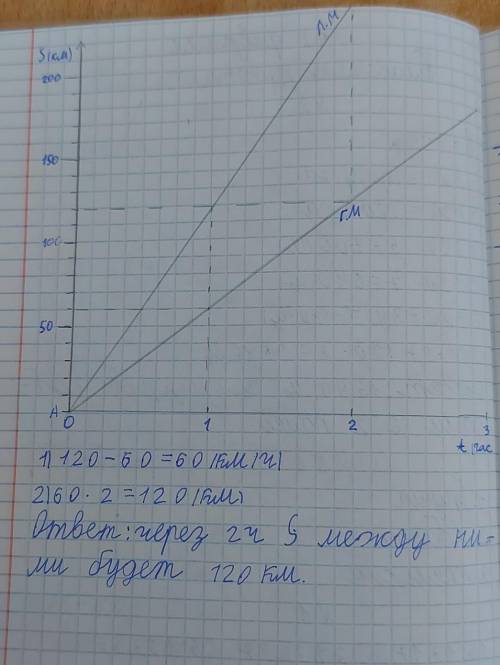 S(км)
Л.М
200
150
г.М
100
50
A
0 1 2 3
t час
1) 120-60=60(км/ч)
2)60·2=120(км)
Ответ: через 2ч S между ни-
ми будет 120 км.